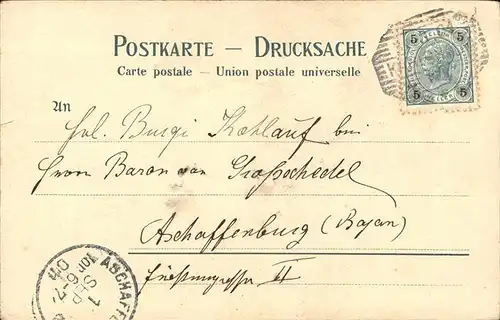 POSTKARTE — DRUCKSACHE
Carte postale — Union postale universelle
An
Frl. Busgi Kohlauf bei
Herrn Baron von Großschedel
Aschaffenburg (Bayern)
II
5 5
5 5
ASCHAFF
1
SEP
6-7